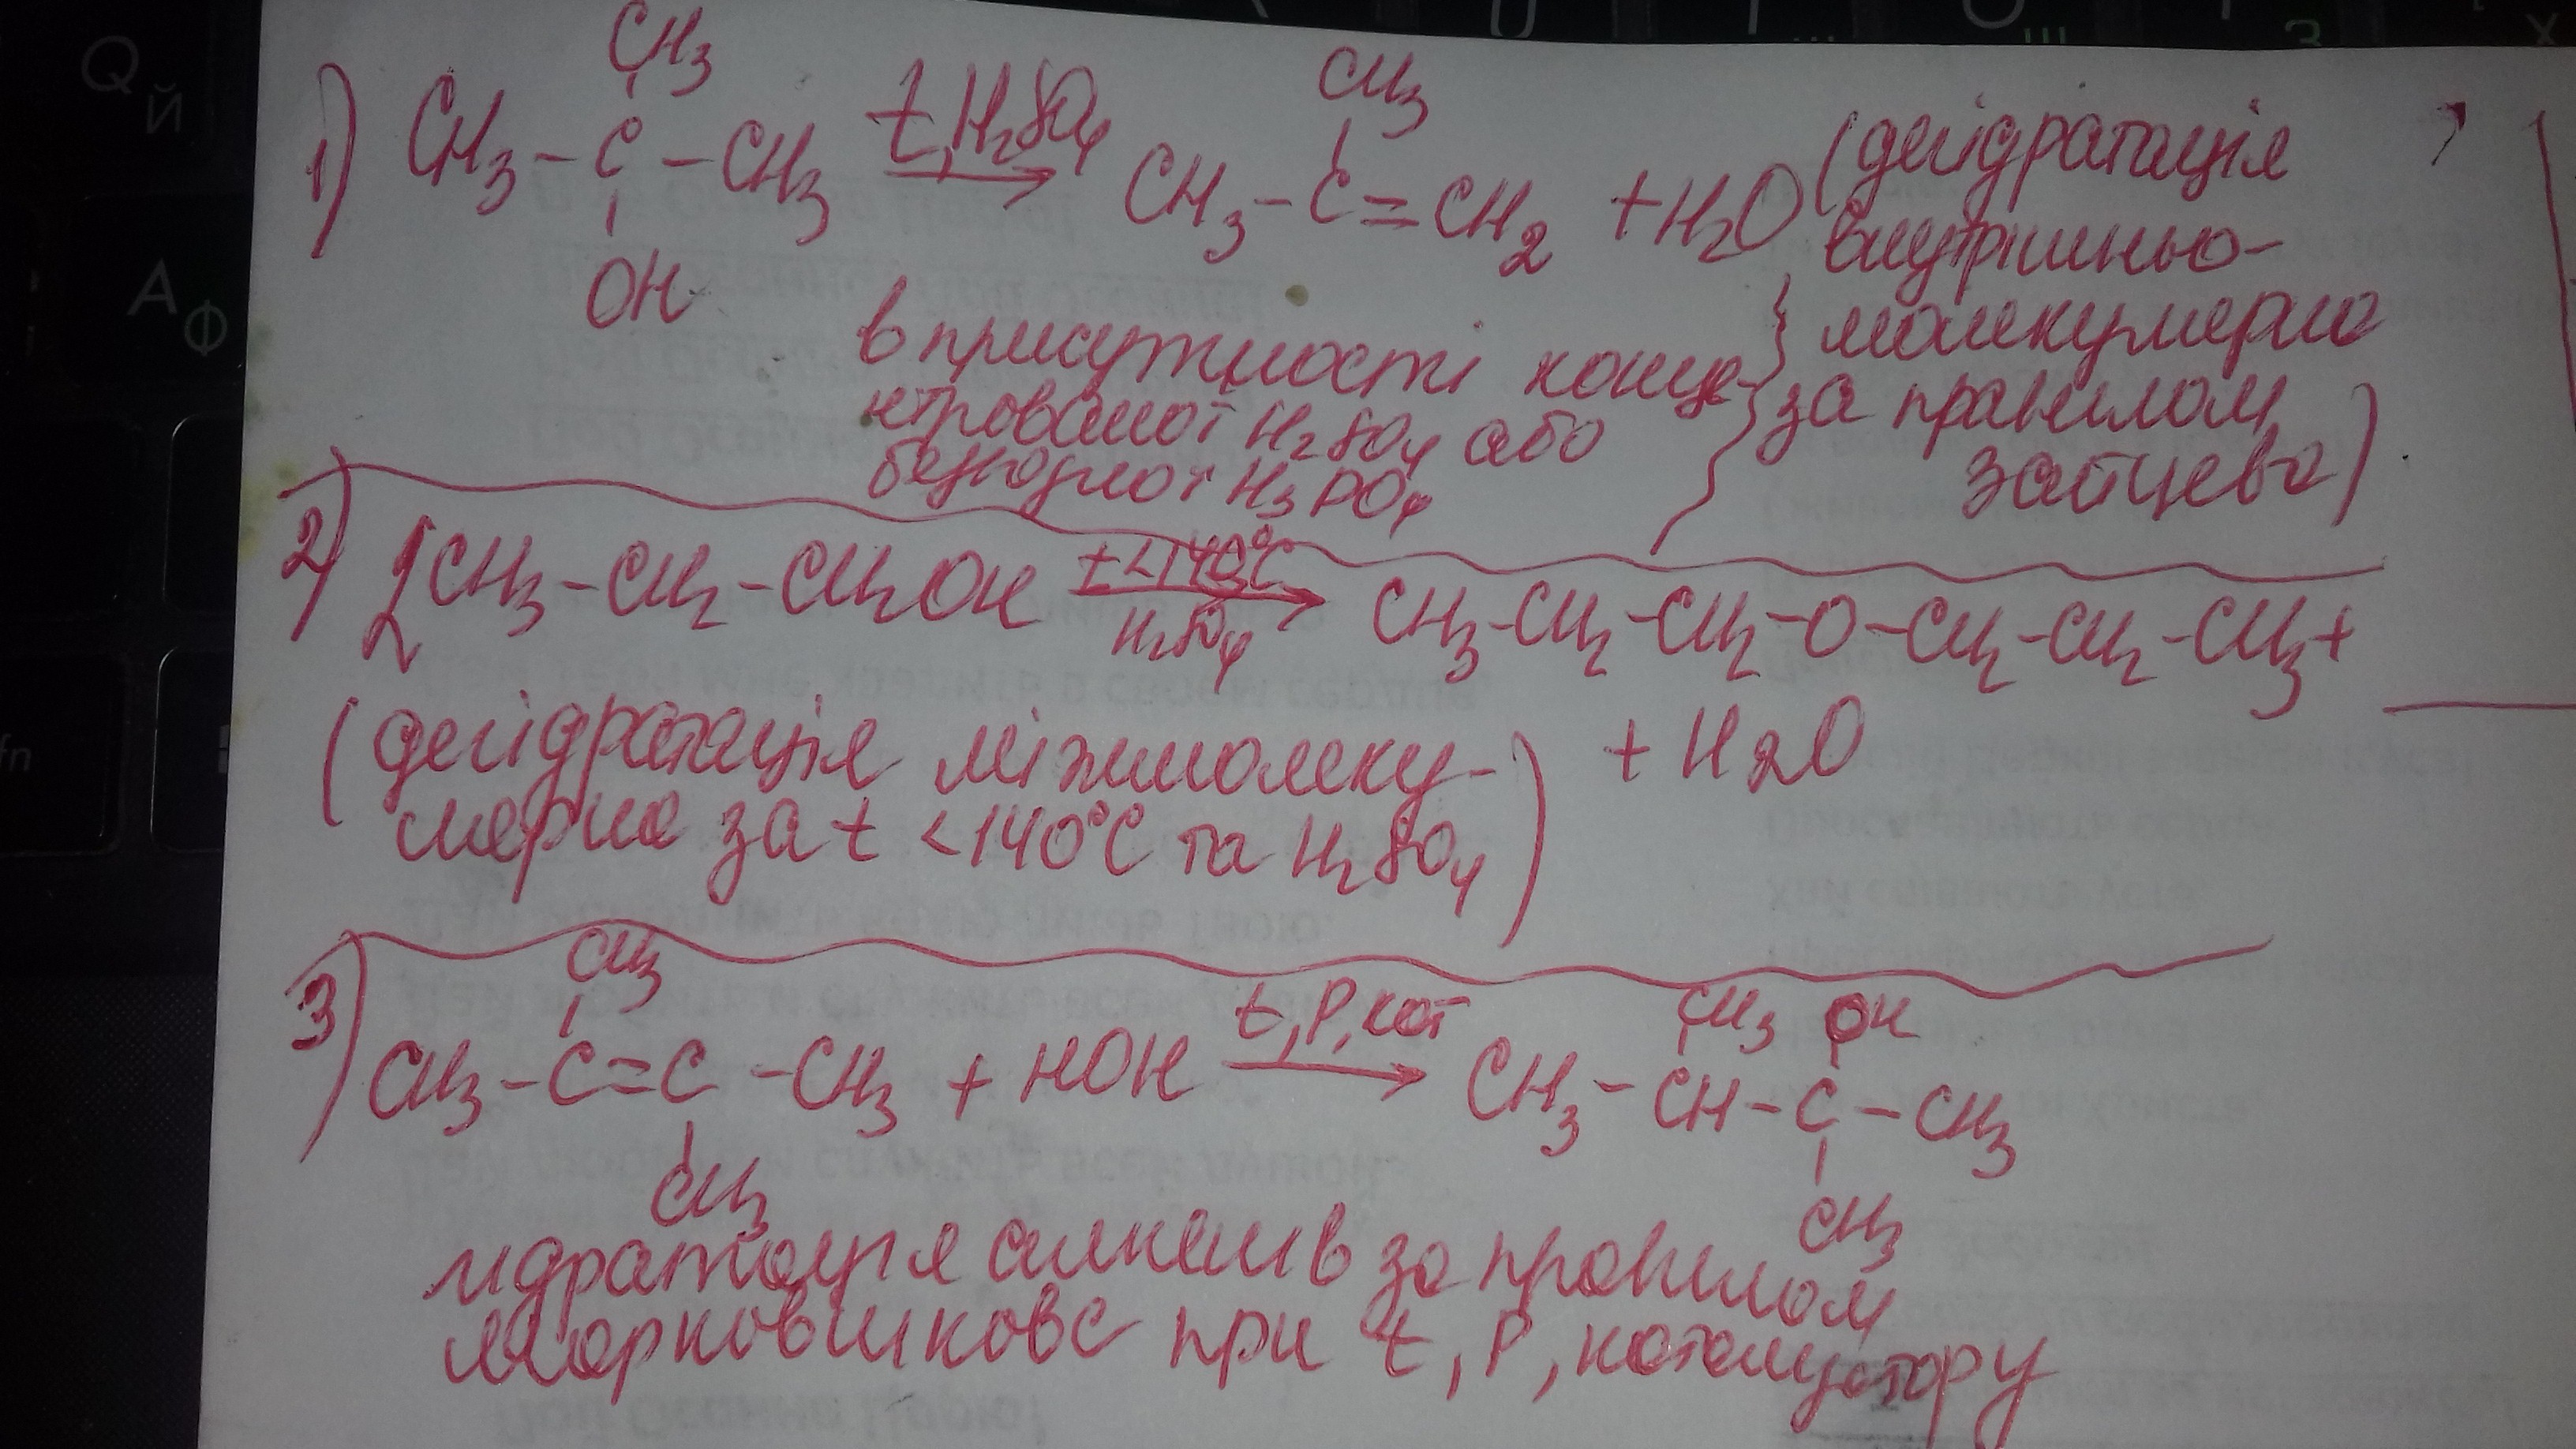 CH₃
1) CH₃ - C - CH₃ t, H₂SO₄ → CH₃ - C = CH₂ + H₂O (дегідратація
OH
CH₃
внутрішньо-
молекулярна
за правилом
Зайцева)
в присутності конце-
нтрованої H₂SO₄ або
безводної H₃PO₄
2) 2CH₃ - CH₂ - CH₂OH t<140°C H₂SO₄ → CH₃ - CH₂ - CH₂ - O - CH₂ - CH₂ - CH₃ +
+ H₂O
(дегідратація міжмолеку-
лярна за t <140°C та H₂SO₄)
CH₃
3) CH₃ - C = C - CH₃ + HOH t, P, кат → CH₃ - CH - C - CH₃
CH₃
CH₃ OH
CH₃
гідратація алкенів за правилом
Марковнікова при t, P, каталізатору
Q Й
А Ф
fn